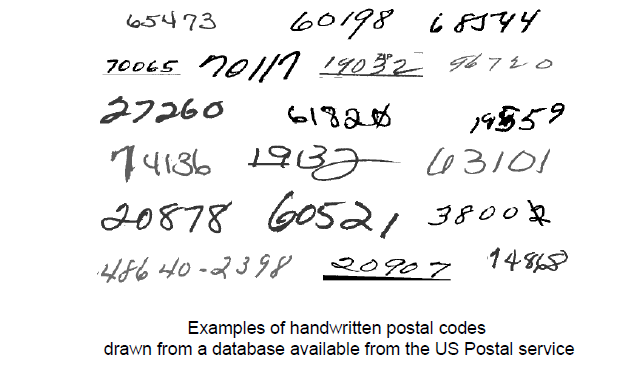 65473 60198 68544
70065 70117 19032 96720
27260 61820 19559
74136 19137 63101
20878 60521 38002
48640-2398 20907 14868
Examples of handwritten postal codes
drawn from a database available from the US Postal service